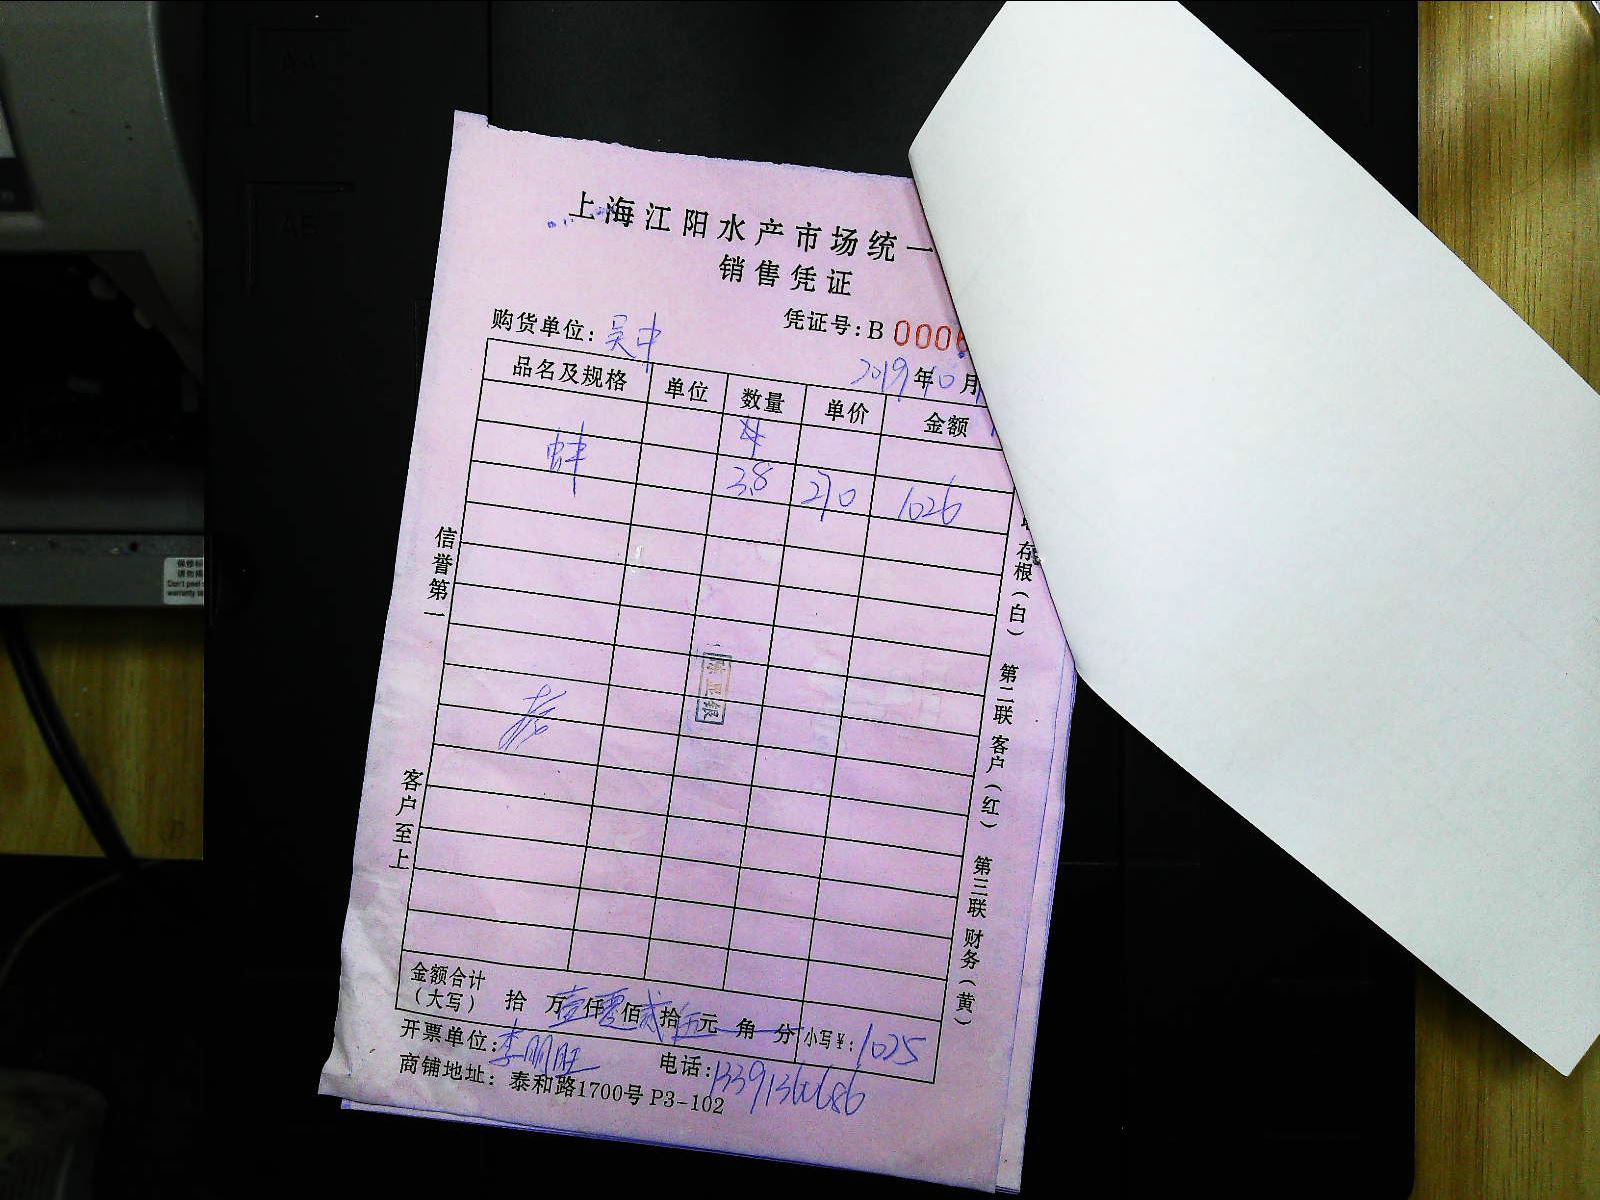 上海江阳水产市场统一
销售凭证
购货单位：吴中
凭证号：B 0006
2019年10月
品名及规格 单位 数量 单价 金额
蚌 3.8 270 1026
信誉第一
客户至上
存根（白） 第二联 客户（红） 第三联 财务（黄）
金额合计
（大写） 拾 万壹仟零佰贰拾伍元 角 分 小写￥：1025
开票单位：李朋旺 电话：13391360686
商铺地址：泰和路1700号 P3-102
A4
A5
Don't peel